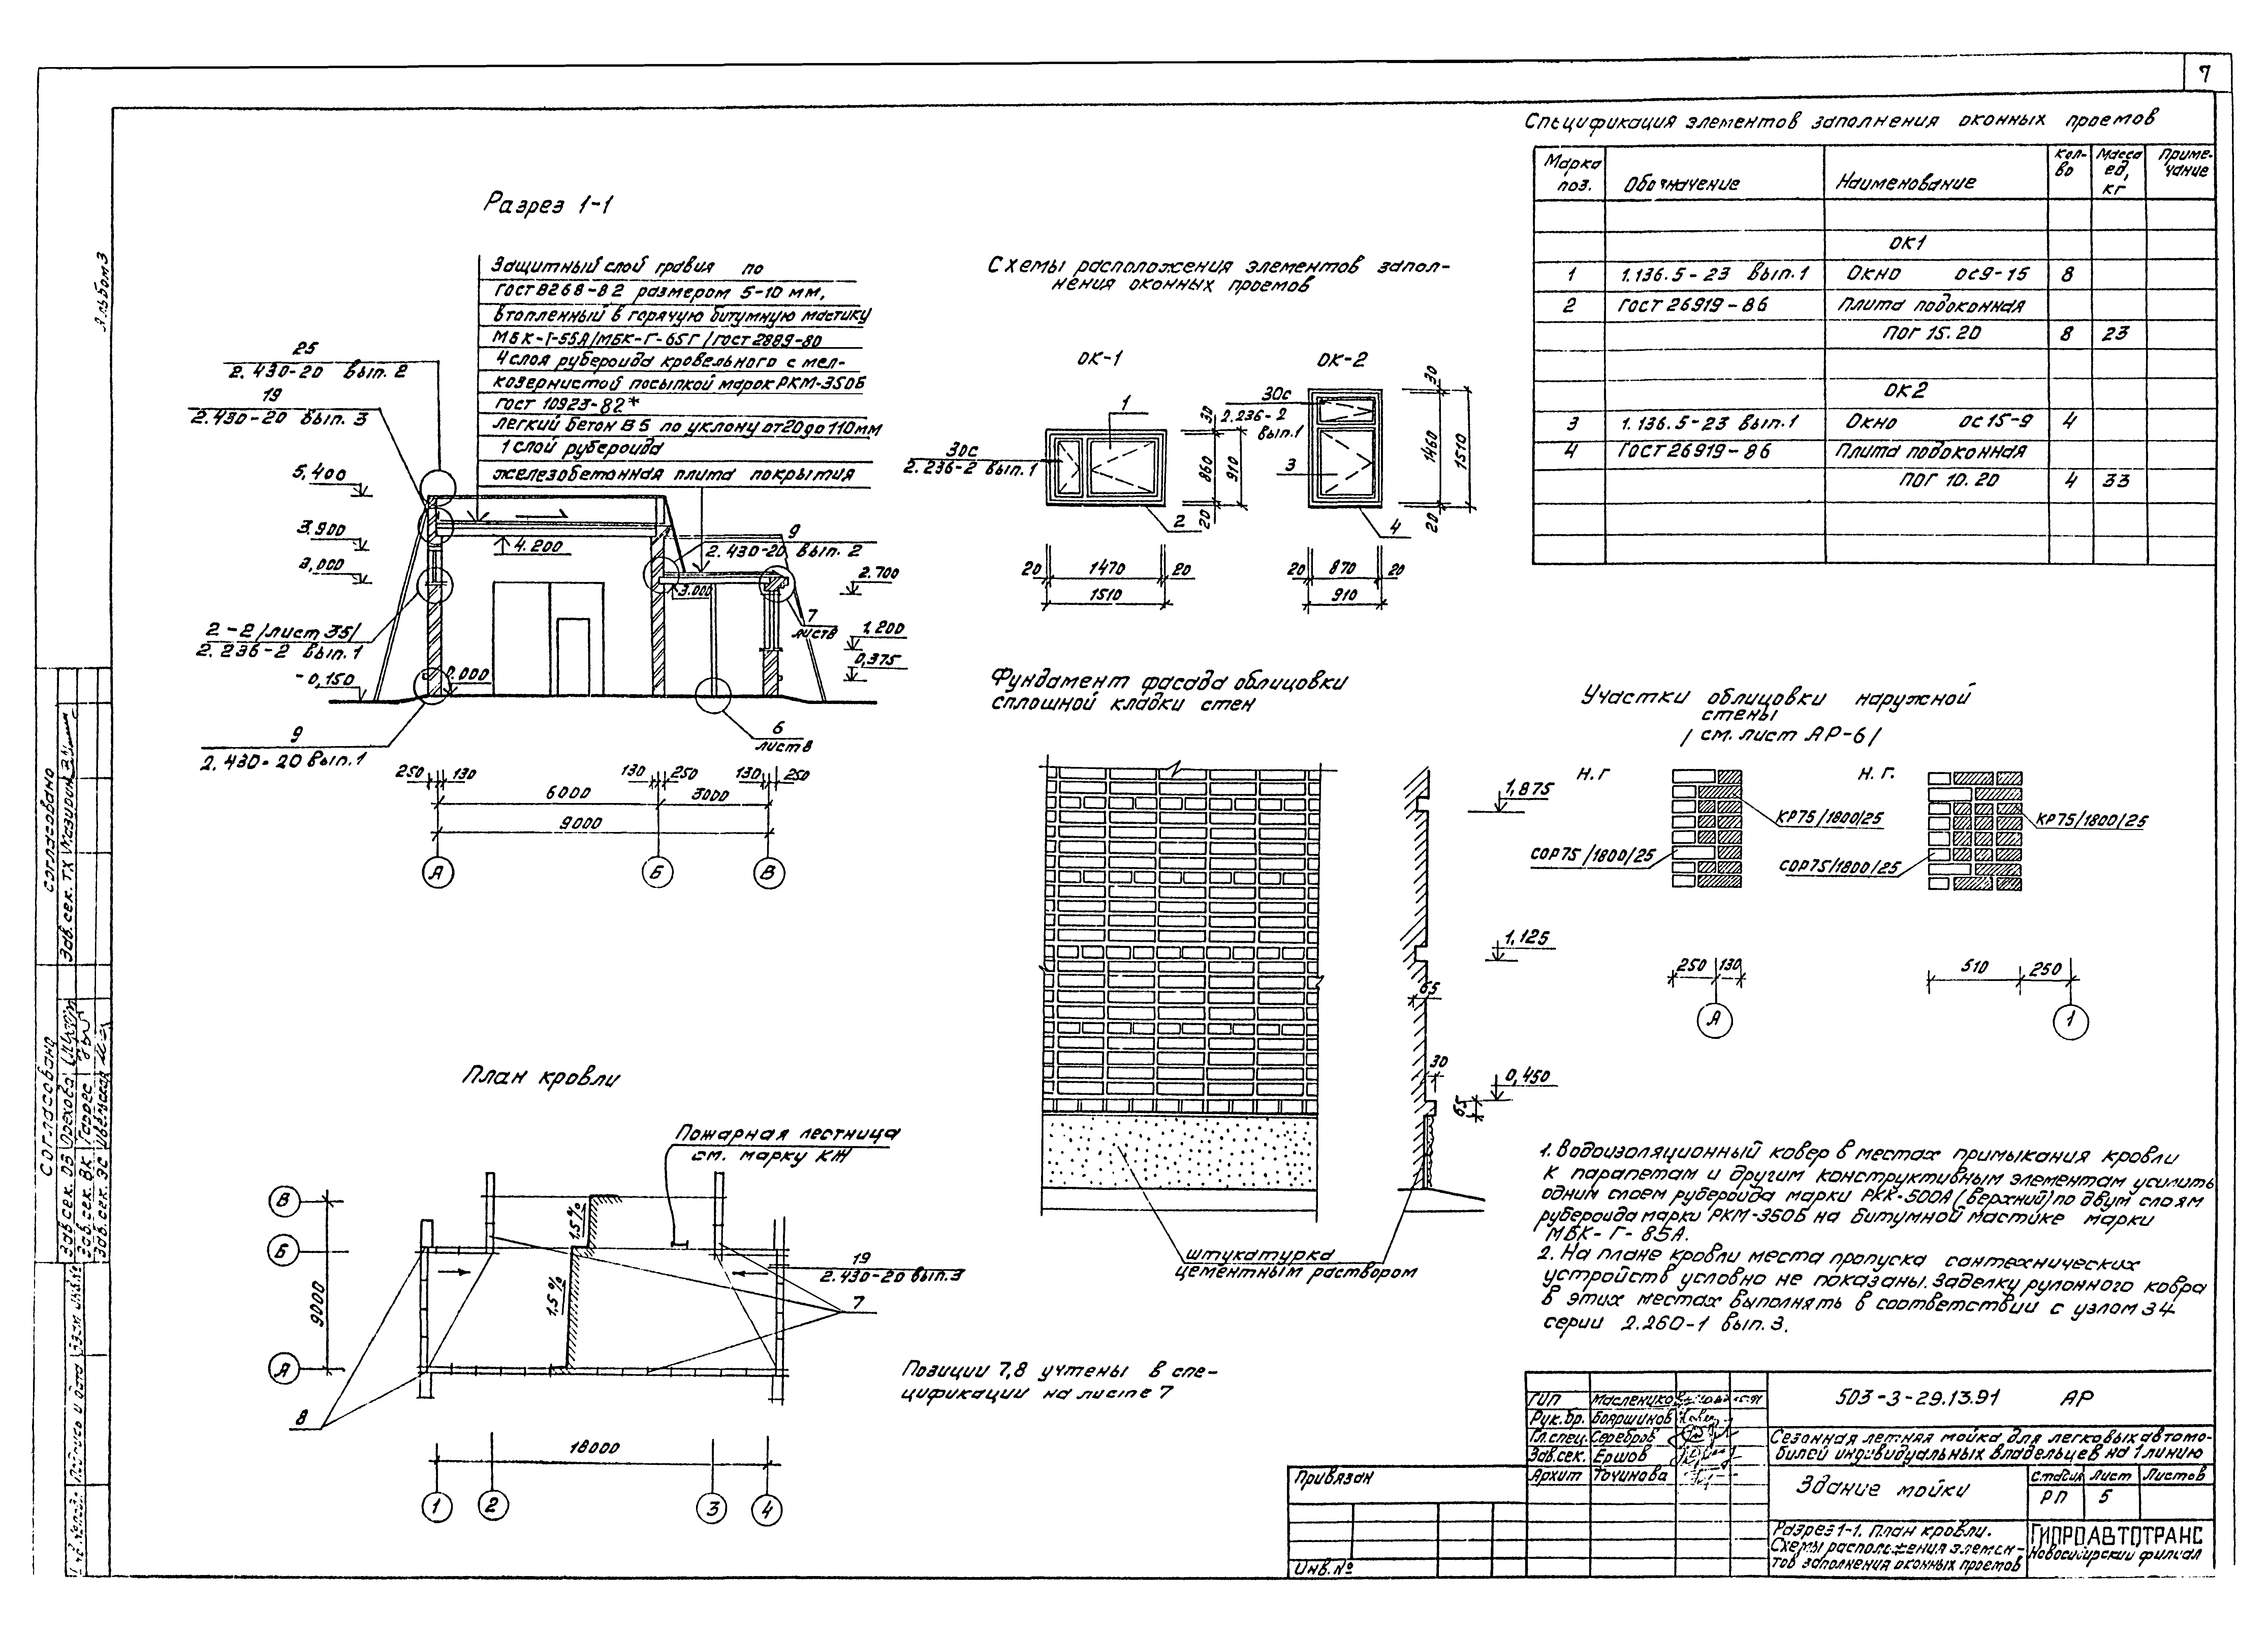 7
Альбом 3
Разрез 1-1
Защитный слой гравия по
ГОСТ 8268-82 размером 5-10 мм,
втопленный в горячую битумную мастику
МБК-Г-55А/МБК-Г-65Г/ГОСТ 2889-80
4 слоя рубероида кровельного с мел-
козернистой посыпкой марок РКМ-350Б
ГОСТ 10923-82*
легкий бетон В5 по уклону от 20 до 110мм
1 слой рубероида
железобетонная плита покрытия
25
2.430-20 вып. 2
19
2.430-20 вып. 3
5,400
3.900
3,000
4.200
9
2.430-20 вып. 2
3.000
2.700
7
лист 8
1.200
0,375
2-2/лист 35/
2.236-2 вып.1
-0,150
0.000
9
2.430-20 вып.1
6
лист 8
250 130 130 250 130 250
6000 3000
9000
А Б В
Схемы расположения элементов запол-
нения оконных проемов
ОК-1
ОК-2
1
30с
2.236-2 вып.1
2
30 860 20
910
20 1470 20
1510
30с
2.236-2
вып.1
3
4
30 1460 20
1510
20 870 20
910
Спецификация элементов заполнения оконных проемов
Марка поз. Обозначение Наименование Кол-во Масса ед, кг Приме-чание
ОК1
1 1.136.5-23 вып.1 Окно ОС9-15 8
2 ГОСТ 26919-86 Плита подоконная
ПОГ 15.20 8 23
ОК2
3 1.136.5-23 вып.1 Окно ОС15-9 4
4 ГОСТ 26919-86 Плита подоконная
ПОГ 10.20 4 33
Фундамент фасада облицовки
сплошной кладки стен
1,875
1,125
65
30
0,450
65
штукатурка
цементным раствором
Участки облицовки наружной
стены
/ см. лист АР-6/
Н.Г
КР75/1800/25
СОР75/1800/25
250 130
А
Н.Г.
КР75/1800/25
СОР75/1800/25
510 250
1
План кровли
Пожарная лестница
см. марку КЖ
В
Б
А
9000
1.5%
1.5%
19
2.430-20 вып.3
7
8
18000
1 2 3 4
Позиции 7,8 учтены в спе-
цификации на листе 7
1. Водоизоляционный ковер в местах примыкания кровли
к парапетам и другим конструктивным элементам усилить
одним слоем рубероида марки РКК-500А(верхний) по двум слоям
рубероида марки РКМ-350Б на битумной мастике марки
МБК-Г-85А.
2. На плане кровли места пропуска сантехнических
устройств условно не показаны. Заделку рулонного ковра
в этих местах выполнять в соответствии с узлом 34
серии 2.260-1 вып. 3.
ГИП
Рук.бр. Бояршинов
Гл.спец. Серебров
Зав.сек. Ершов
Архит Точинова
503-3-29.13.91 АР
Сезонная летняя мойка для легковых автомо-
билей индивидуальных владельцев на 1 линию
Здание мойки
Стадия Лист Листов
РП 5
Разрез 1-1. План кровли.
Схемы расположения элемен-
тов заполнения оконных проемов
ГИПРОАВТОТРАНС
Новосибирский филиал
Привязан
Инв.№
Согласовано
Зав. сек. ТХ
Согласовано
Зав сек. ОВ Орехова
Зав. сек. ВК
Зав. сек. ЭС
Подпись и дата